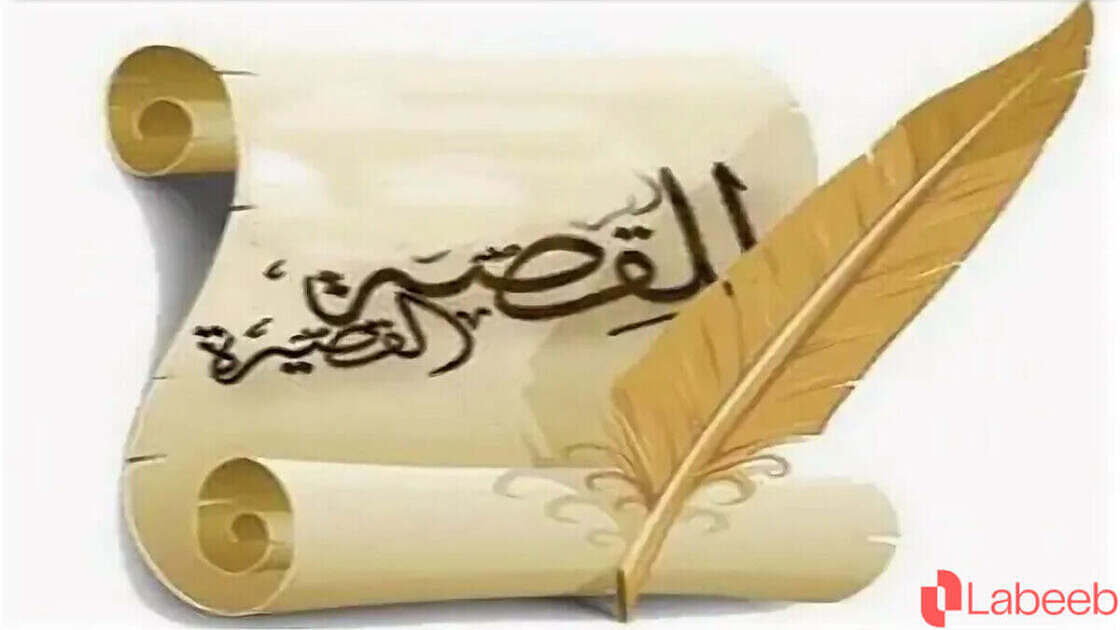 القصة
القصيرة
Labeeb